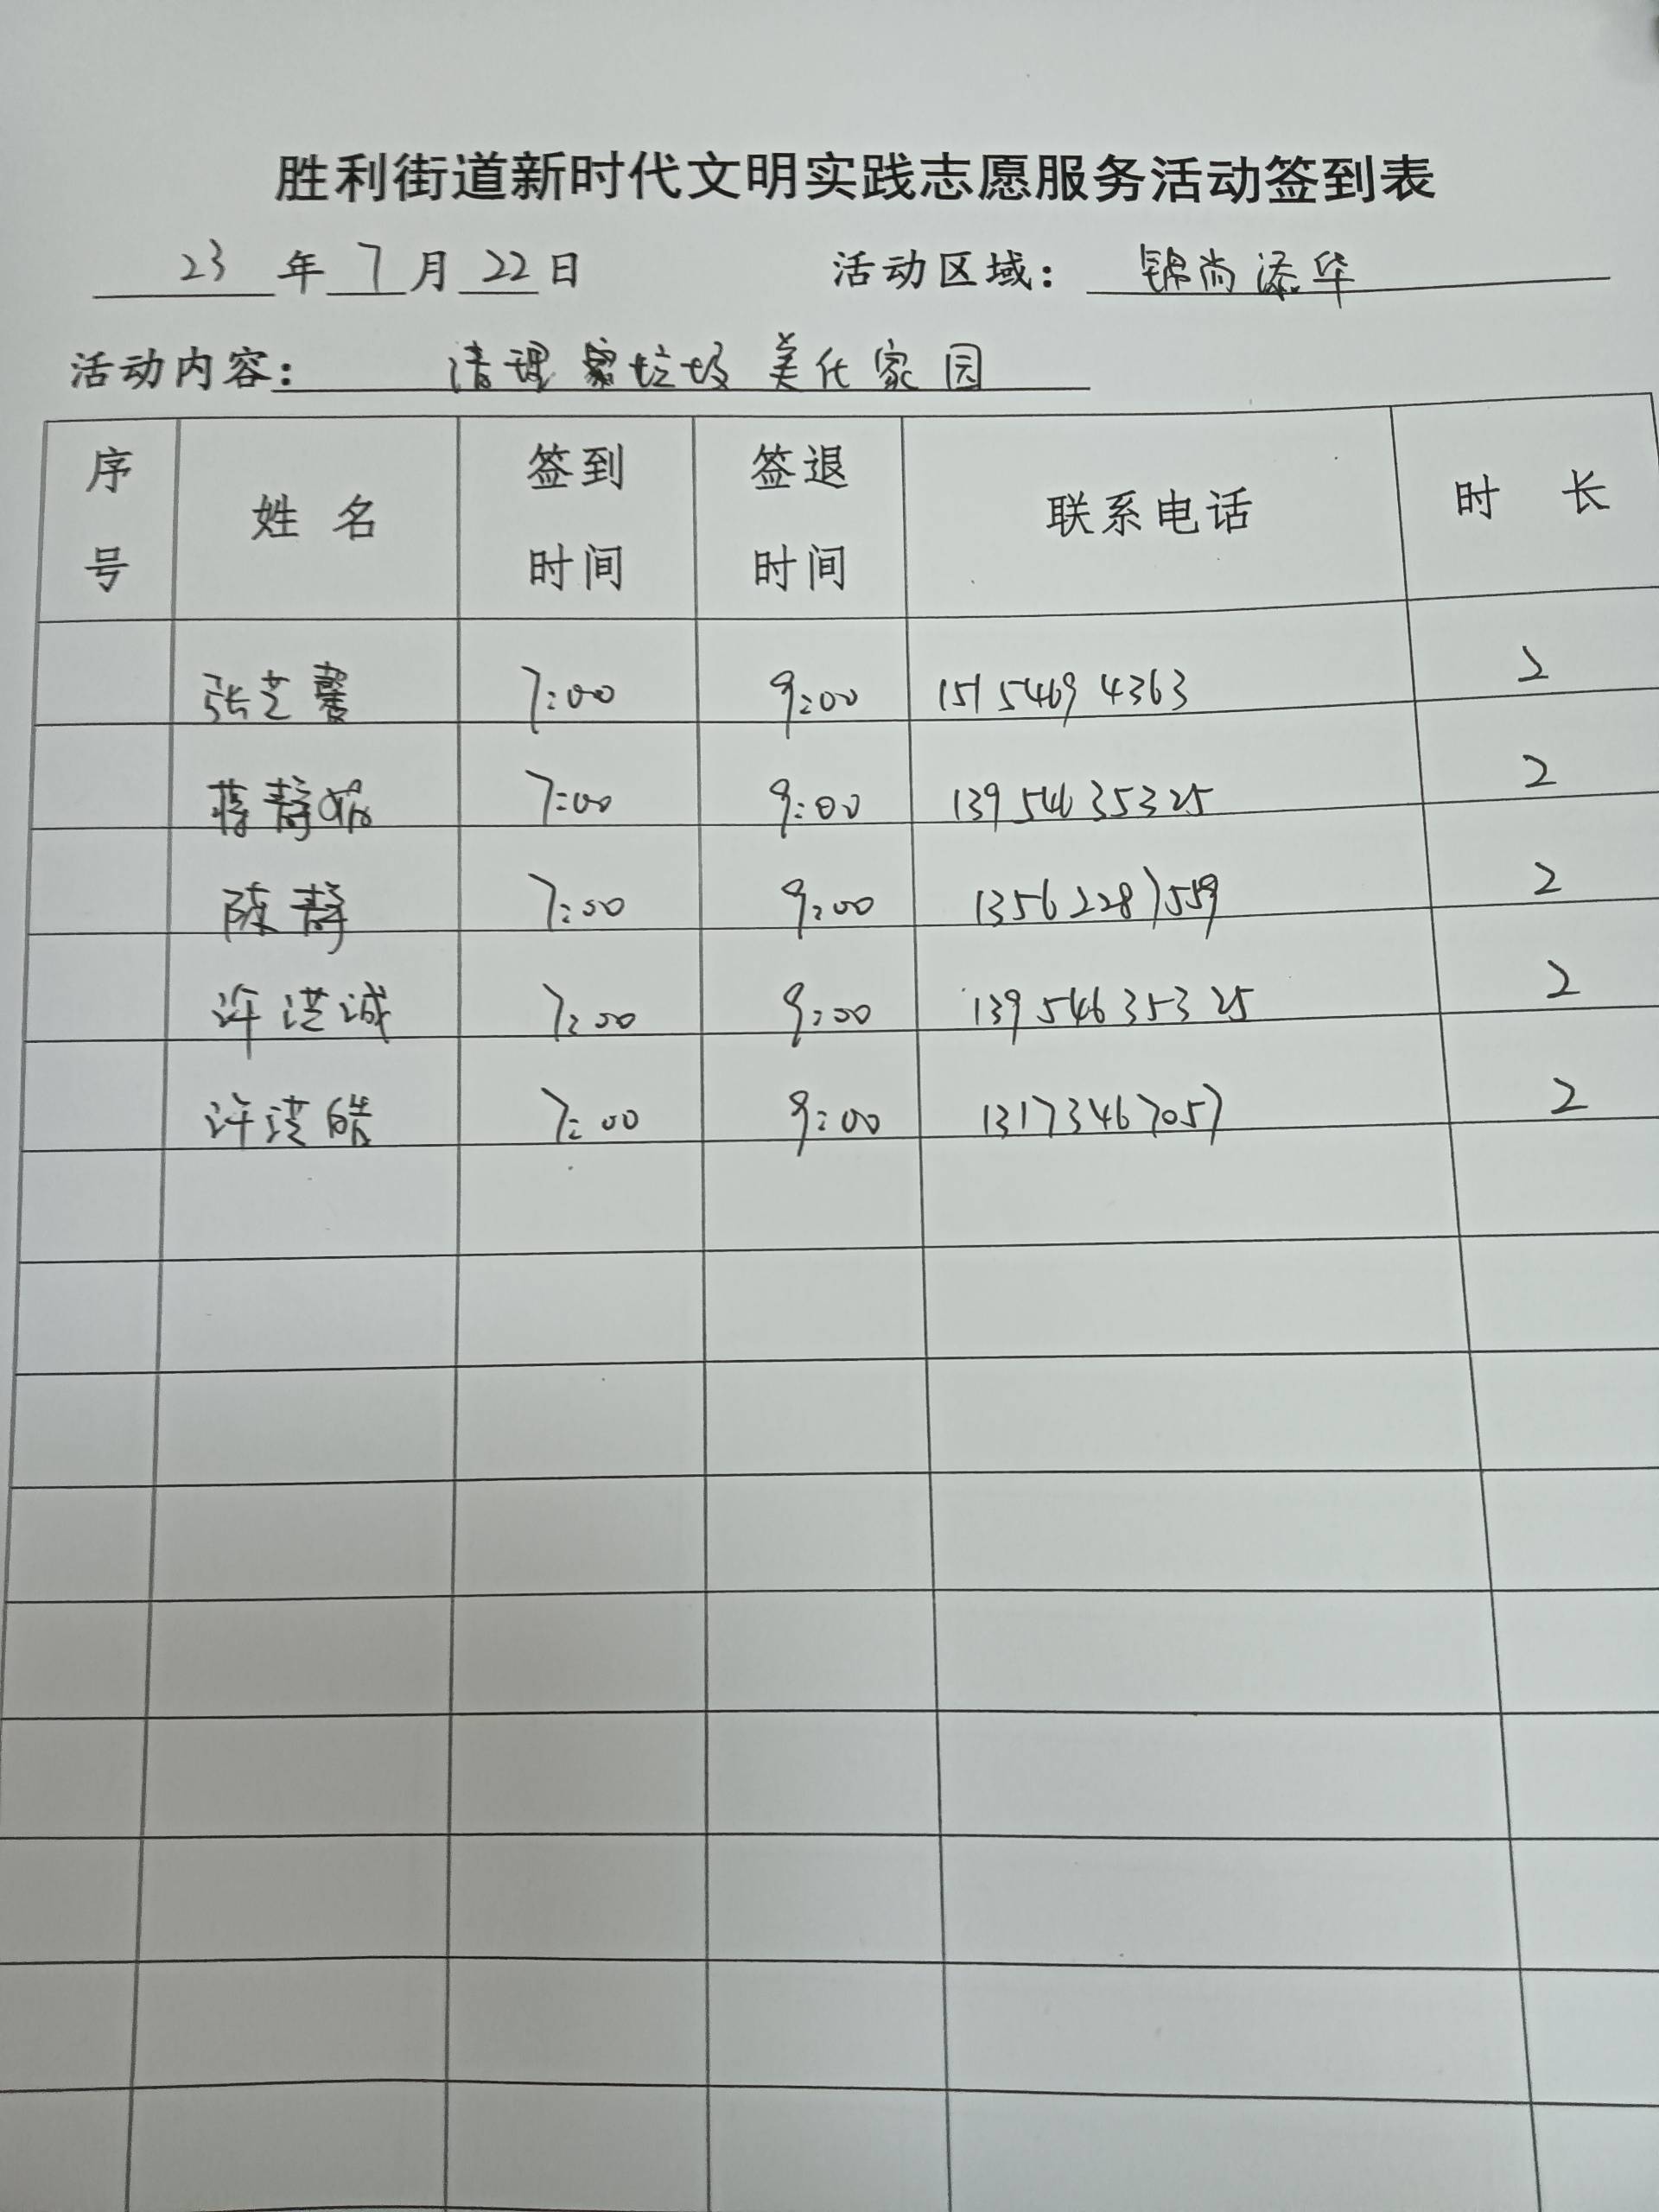 胜利街道新时代文明实践志愿服务活动签到表
23 年 7 月 22 日 活动区域: 锦尚添华
活动内容: 清理垃圾 美化家园
序号 姓 名 签到时间 签退时间 联系电话 时 长
张艺馨 7:00 9:00 15154694363 2
蒋静 7:00 9:00 13954635325 2
陈静 7:00 9:00 13562287559 2
许洪诚 7:00 9:00 13954635325 2
许洪皓 7:00 9:00 13173467057 2